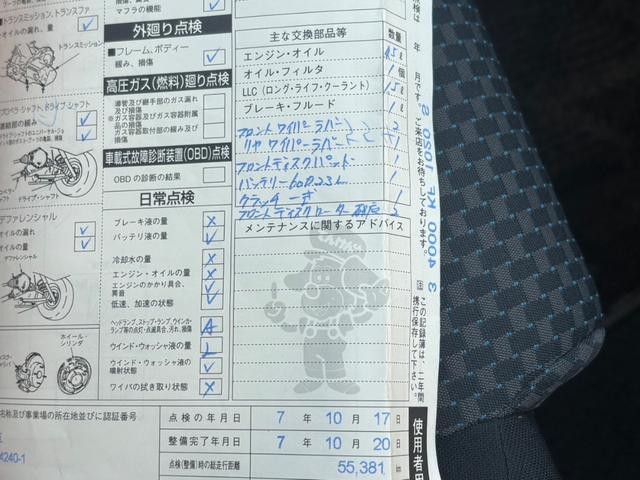 ■トランスミッション、トランスファ
オイルの漏れ、量
トランスミッション
プロペラ・シャフト、ドライブ・シャフト
連結部の緩み
ドライブ・シャフト
デファレンシャル
オイルの漏れ
オイルの量
デファレンシャル
ホイール・シリンダ
マフラの機能
外廻り点検
■フレーム、ボディー
緩み、損傷
高圧ガス(燃料)廻り点検
導管及び継手部のガス漏れ及び損傷
※ガス容器及びガス容器附属品の損傷
ガス容器取付部の緩み及び損傷
車載式故障診断装置(OBD)点検
OBDの診断の結果
日常点検
ブレーキ液の量
バッテリ液の量
冷却水の量
エンジン・オイルの量
エンジンのかかり具合、異音
低速、加速の状態
ヘッドランプ、ストップ・ランプ、ウインカ・ランプ等の点灯・点滅具合、汚れ、損傷
ウインド・ウォッシャ液の量
ウインド・ウォッシャ液の噴射状態
ワイパの拭き取り状態
主な交換部品等 数量
エンジン・オイル 4.5ℓ
オイル・フィルタ 1個
LLC(ロング・ライフ・クーラント) 1.5ℓ
ブレーキ・フルード 1ℓ
フロントワイパーラバー 2
リヤワイパーラバー 1
フロントディスクパット 1
バッテリー60B23L 1
クラッチ一式 1
フロントディスクローター研磨 2
メンテナンスに関するアドバイス
年 月です。ご来店をお待ちしております。
3 4000 KE 0S0 8
この記録簿は、二年間携行保存して下さい。
名称及び事業場の所在地並びに認証番号
4240-1
点検の年月日 7年10月17日
整備完了年月日 7年10月20日
点検(整備)時の総走行距離 55,381 km
使用者